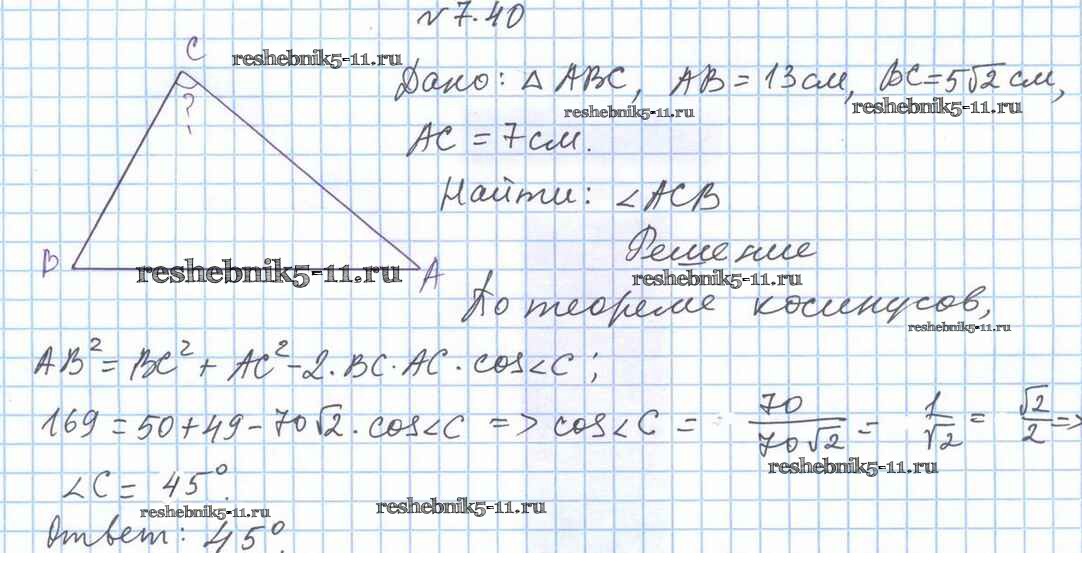 № 7.40
C
reshebnik5-11.ru
Дано: △ ABC, AB = 13 см, BC = 5√2 см,
reshebnik5-11.ru
reshebnik5-11.ru
?
AC = 7 см.
Найти: ∠ACB
Решение
B
A
reshebnik5-11.ru
reshebnik5-11.ru
По теореме косинусов,
reshebnik5-11.ru
AB² = BC² + AC² - 2·BC·AC·cos∠C;
169 = 50 + 49 - 70√2·cos∠C => cos∠C = - 70/70√2 = 1/√2 = √2/2 =>
reshebnik5-11.ru
∠C = 45°.
reshebnik5-11.ru
reshebnik5-11.ru
Ответ: 45°.